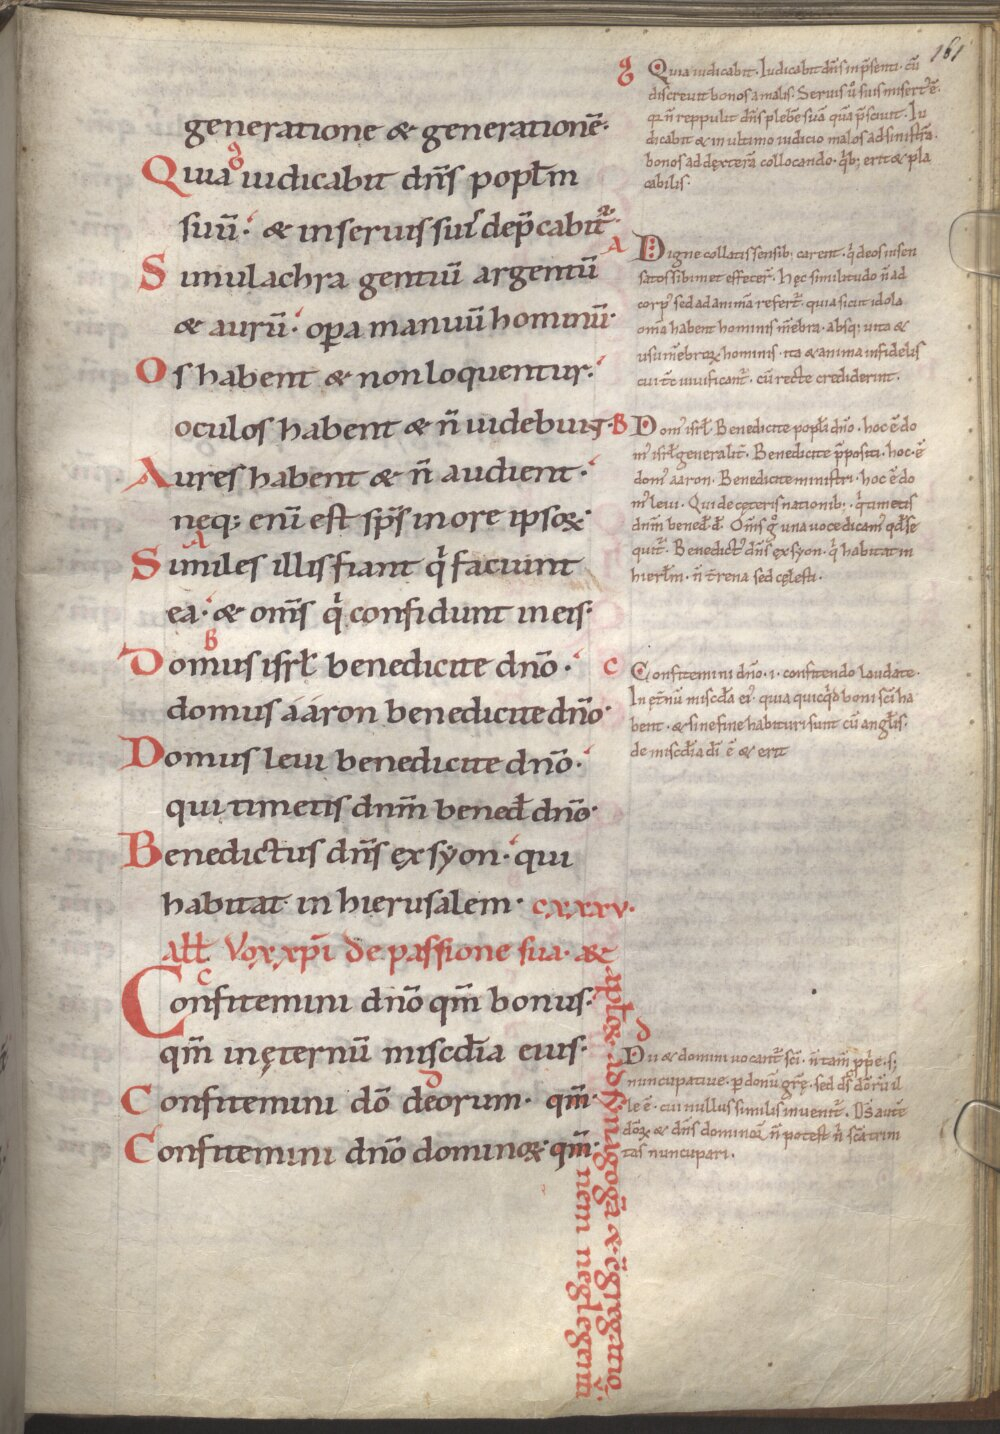 161
generatione & generationē·
Quia iudicabit dn̄s popl̄m
suū· & in seruis suis dep̄cabit᷑·
Simulachra gentiū argentū
& aurū· opa manuū hominū·
Os habent & non loquentur·
oculos habent & n̄ uidebunt·
Aures habent & n̄ audient·
neq; enī est sp̄s in ore ipsoꝝ·
Similes illis fiant q̇ faciunt
ea· & om̄s q̇ confidunt in eis·
Domus isrł benedicite dn̄o·
domus aaron benedicite dn̄o·
Domus leui benedicite dn̄o·
qui timetis dnm̄ bened̄ dn̄o·
Benedictus dn̄s ex syon· qui
habitat in hierusalem· cxxxv·
all̄ł Vox xp̄i de passione sua· &
Confitemini dn̄o qm̄ bonus·
qm̄ in ęternū miscd̄ia eius·
Confitemini dō deorum· qm̄·
Confitemini dn̄o dominoꝝ· qm̄·
nem neglegenti
g Quia iudicabit· Iudicabit dn̄s in p̄senti· cū
discreuit bonos a malis· Seruis ů suis misert᷑ ē·
q̇ n̄ reppulit dn̄s plebē suā quā p̄sciuit· Iu
dicabit & in ultimo iudicio malos ad sinistrā·
bonos ad dexterā collocando· q̇b; erit & pla
cabilis·
A Digne collatis sensib; carent· q̇ deos insen
satos sibimet effecer᷑· Hęc similitudo n̄ ad
corp᷒ sed ad animā refert᷑· quia sicut idola
om̄ia habent hominis mēbra· absq; uita &
usu mēbroꝝ hominis· ita & anima infidelis
cui tc̄ uiuificant᷑· cū recte crediderint·
B Dom᷒ isrł Benedicite popl̄i dn̄o· hoc ē do
m᷒ isrł generalit᷑· Benedicite p̄positi· hoc· ē
dom᷒ aaron· Benedicite ministri· hoc ē do
m᷒ leui· Qui de cęteris nationib;· q̇ timetis
dnm̄ bened̄ d̄· Om̄is g᷒ una uoce dicam᷒ qd̄ se
quit᷑· Benedict᷒ dn̄s ex syon· q̇ habitat in
hierl̄m· n̄ t̄rena sed cęlesti·
C Confitemini dn̄o· i· confitendo laudate·
In et̄nū miscd̄ia ei᷒· quia quicq̇d boni sc̄i ha
bent· & sine fine habituri sunt cū angl̄is·
de miscd̄ia dī ē & erit
D Dii & domini uocant᷑ sc̄i· n̄ tam̄ pp̄e· s;
nuncupatiue· p donū grę̄· sed ds̄ doꝝ il
le ē· cui nullus similis inuenit᷑· Ds̄ autē
doꝝ & dn̄s dominoꝝ n̄ potest n̄ sc̄a trini
tas nuncupari·